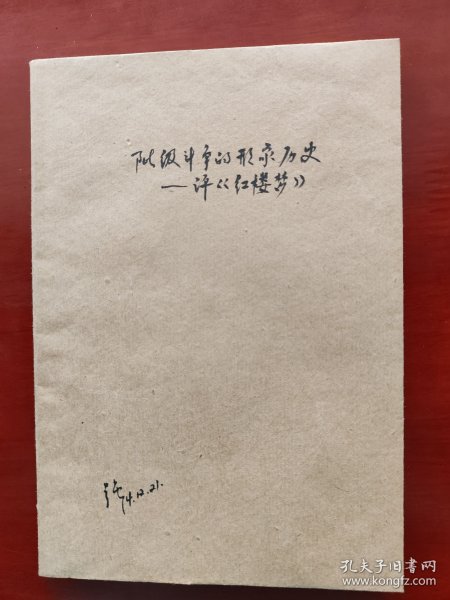 阶级斗争的形象历史
—评《红楼梦》
74.12.21.
孔夫子旧书网
www.kongfz.com